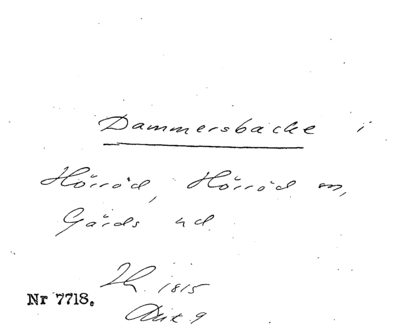 Dammersbacke i
Hörröd, Hörröd sn,
Gärds hd
1815
Nr 7718.
Akt 9